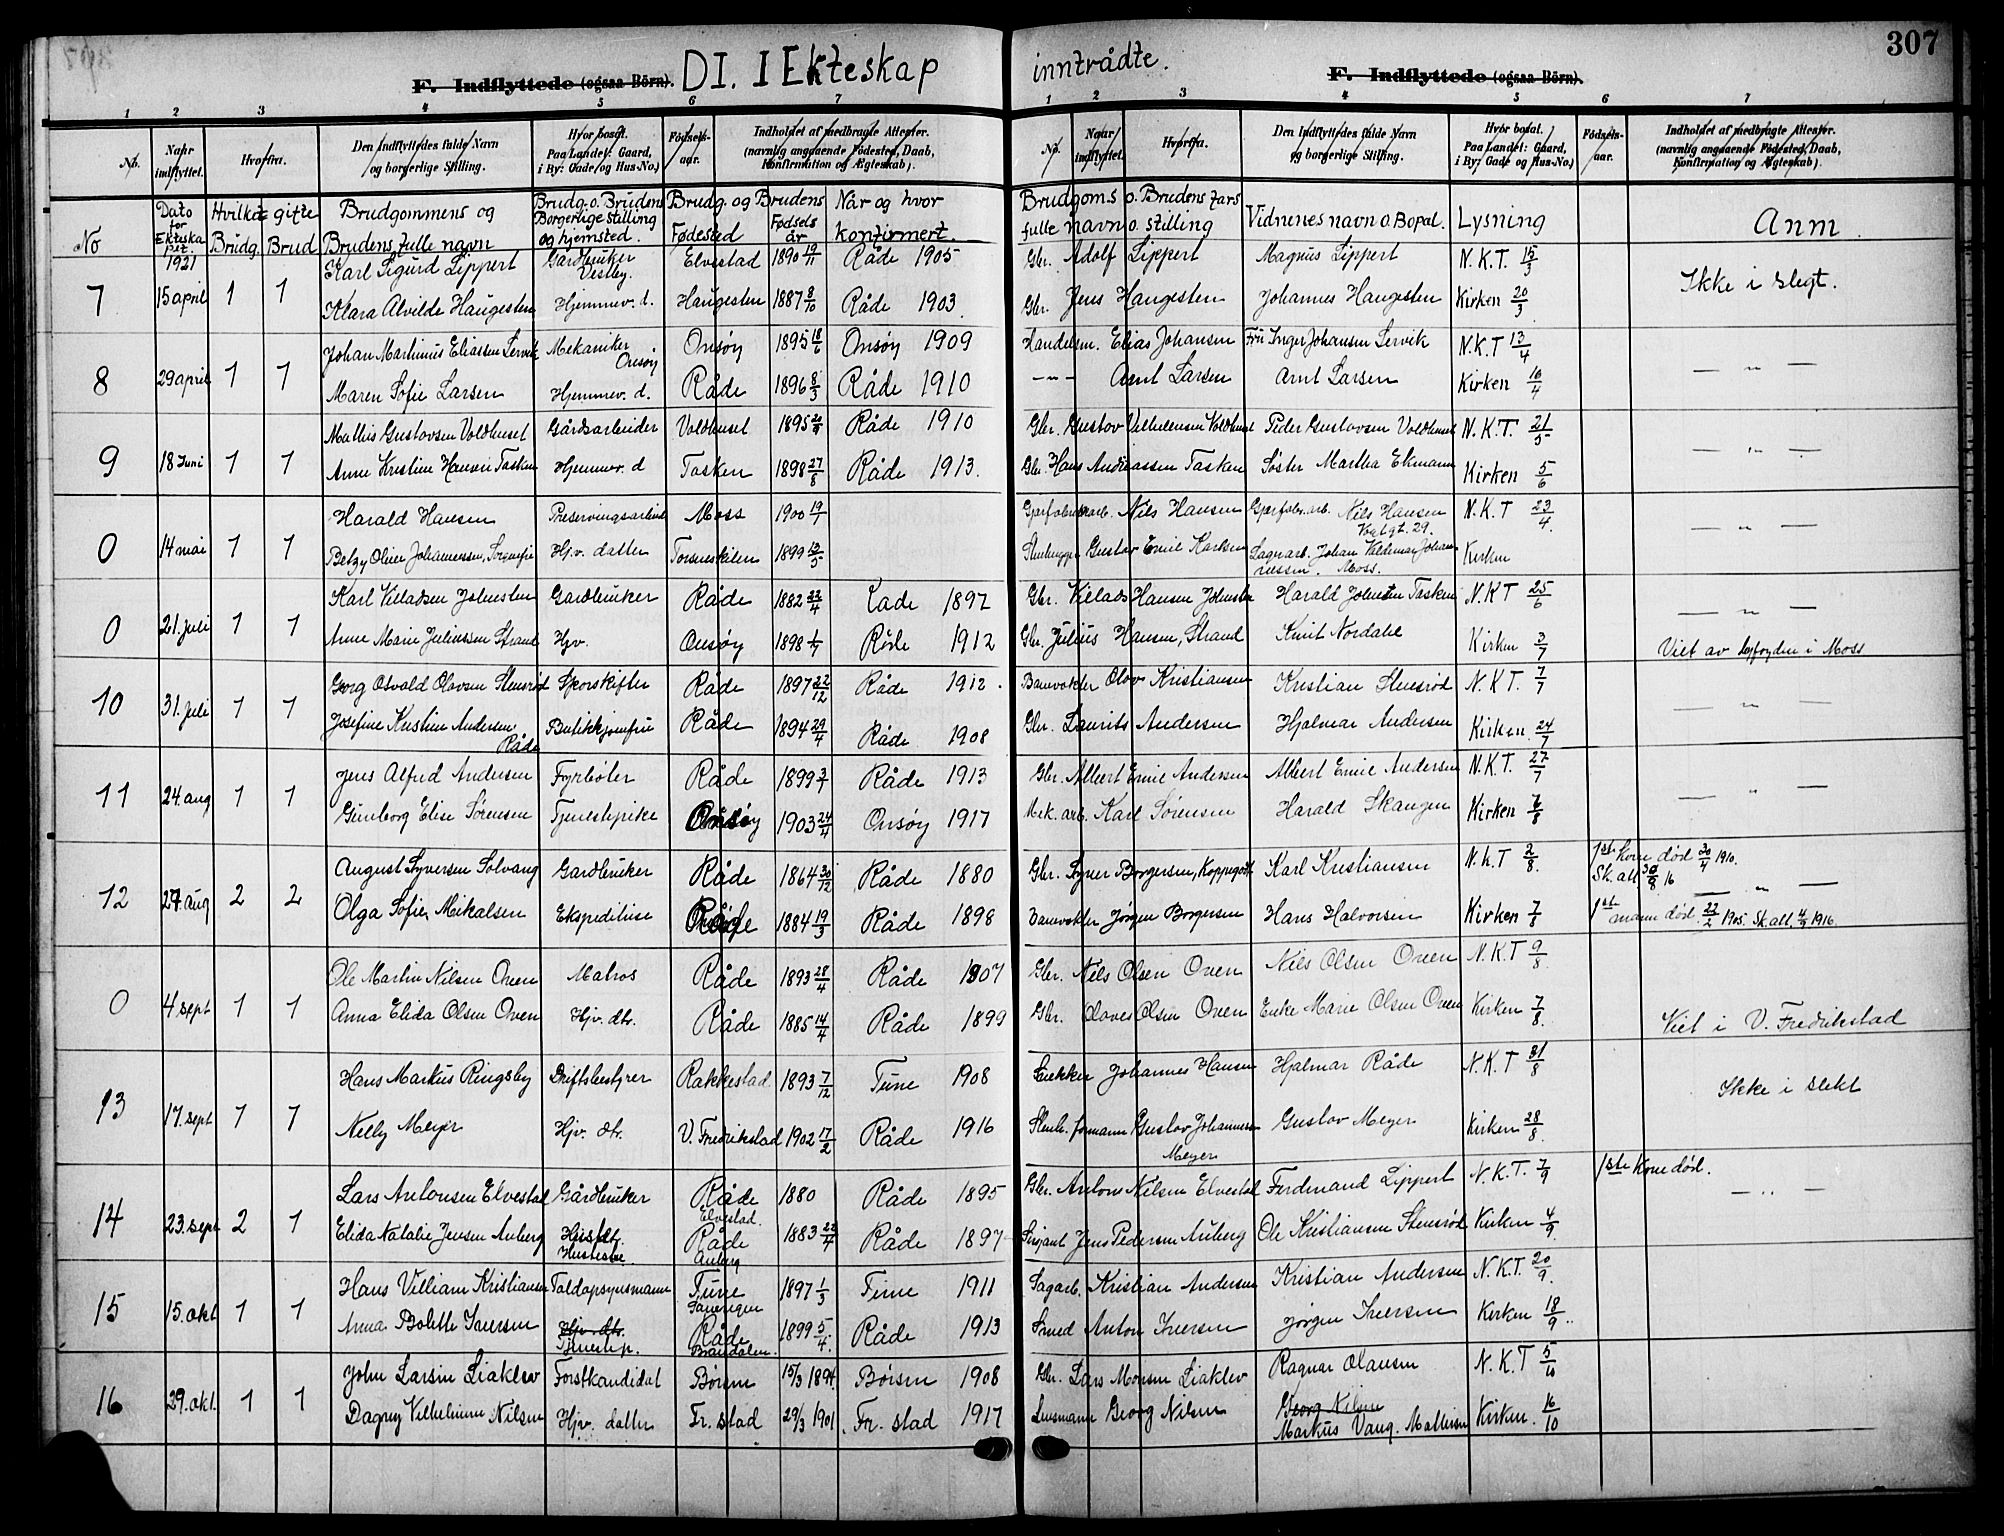 307
F. Indflyttede (ogsaa Börn). DI. I Ekteskap
inntrådte. F. Indflyttede (ogsaa Börn).
1 2 3 4 5 6 7
1 2 3 4 5 6 7
No. Naar indflyttet. Hvorfra. Den Indflyttedes fulde Navn og borgerlige Stilling. Hvor bosat. Paa Landet: Gaard, i By: Gade og Hus-No.) Födsels-aar. Indholdet af medbragte Attester. (navnlig angaaende Födested, Daab, Konfirmation og Ægteskab).
No. Naar indflyttet. Hvorfra. Den Indflyttedes fulde Navn og borgerlige Stilling. Hvor bosat. Paa Landet: Gaard, i By: Gade og Hus-No.) Födsels-aar. Indholdet af medbragte Attester. (navnlig angaaende Födested, Daab, Konfirmation og Ægteskab).
No Dato for Ekteskapet. Hvilket gifte Brudg. Brud Brudgommens og Brudens fulle navn Brudg. o. Brudens Borgerlige stilling og hjemsted. Brudg. og Brudens Fødested Fødsels år Når og hvor konfirmert.
Brudgoms o. Brudens fars fulle navn o. stilling Vidnenes navn o. Bopæl. Lysning Anm.
1921
Karl Sigurd Lippert Gardbruker Vestby. Elvestad 1890 19/11 Råde 1905 Gbr. Adolf Lippert Magnus Lippert N.K.T. 15/3
7 15 april 1 1 Ikke i slegt.
Klara Alvilde Haugesten Hjemmev. d. Haugesten 1887 8/10 Råde 1903. Gbr. Jens Haugesten Johannes Haugesten Kirken 20/3
Johan Martinius Eliassen Lervik Mekaniker Onsøy Onsøy 1895 18/6 Onsøy 1909 Handelsm. Elias Johansen Frù Inger Johansen Lervik N.K.T 13/4
8 29 april 1 1 — " —
Maren Sofie Larsen Hjemmev. d. Råde 1896 8/3 Råde 1910 —"— Arnt Larsen Arnt Larsen Kirken 10/4
Mathis Gustavsen Voldhuset Gårdsarbeider Voldhuset 1895 Råde 1910 Gbr. Gustav Vilhelmsen Voldhuset Peder Gustavsen Voldhuset N.K.T. 21/5
9 18 Juni 1 1 — " —
Anne Kristine Hansen Tasken Hjemmev. d Tasken 1898 27/8 Råde 1913. Gbr. Hans Andreassen Tasken Søster Martha Ekmann Kirken 5/6
Harald Hansen Preservingsarbeid Moss 1900 19/1 Nils Hansen Nils Hansen Vogtgt. 29. N.K.T 23/4
0 14 mai 1 1 — " —
Betzy Oline Johannessen, Hjv. datter Torsneskilen 1899 Gustav Emil Karlsen Lagerarb. Johan Valdemar Johannessen. Moss. Kirken
Karl Villadsen Johnsten Gardbruker Råde 1882 Råde 1897 Gbr. Villads Hansen Johnsten Harald Johnsten Tasken N.K.T 25/6
0 21. juli 1 1 — " —
Anne Marie Juliussen Strand Hjv. Onsøy 1898 Råde 1912 Gbr. Julius Hansen, Strand Knut Nordahl Kirken 3/7 Viet av byfogden i Moss
Georg Osvald Olavsen Stensrød Sporskifter Råde 1897 22/12 Råde 1912. Banevokter Olav Kristiansen Kristian Stensrød N.K.T. 7/7
10 31. juli 1 1 — " —
Josefine Kristine Andersen Råde Butikkjomfru Råde 1894 29/4 Råde 1908 Gbr. Laurits Andersen Hjalmar Andersen Kirken. 24/7
Jens Alfred Andersen Fyrbøter Råde 1899 Råde 1913 Gbr. Albert Emil Andersen Albert Emil Andersen N.K.T. 27/7
11 24. aug 1 1 — " —
Gunborg Elise Sørensen Tjenestepike Onsøy 1903 24/4 Onsøy 1917 Mek. arb. Karl Sørensen Harald Skaugen Kirken 7/8
August Syversen Solvang Gardbruker Råde 1864 30/12 Råde 1880 Gbr. Syver Borgersen, Karl Kristiansen N.K.T 2/8 1ste kone død 30/4 1910. Sk. att 30/8 16
12 27. aug 2 2 — " —
Olga Sofie, Mikalsen Ekspeditrise Råde 1884 19/3 Råde 1898 Banevokter Jørgen Borgersen Hans Halvorsen Kirken 7/8 1ste mann død. 22/2 1905. Sk. att. 4/9 1916.
Ole Martin Nilsen Oven Matros Råde 1893 28/4 Råde 1907 Gbr. Nils Olsen Oven Nils Olsen Oven N.K.T 9/8
0 4. sept 1 1
Anna Elida Olsen Oven Hjv. dtr. Råde 1885 14/4 Råde 1899 Gbr. Olaves Olsen Oven Enke Marie Olsen Oven Kirken 7/8. Viet i V. Fredrikstad
Hans Markus Ringsby Driftsbestyrer Rakkestad 1893 7/12 Tune 1908 Snekker Johannes Hansen Hjalmar Råde N.K.T 31/8
13 17. sept 1 1 Ikke i slekt
Nelly Meyer Hjv. dtr. V. Fredrikstad 1902 17/2 Råde 1916 Stenh. formann Gustav Johannessen Meyer Gustav Meyer Kirken 28/8.
Lars Antonsen Elvestad Gårdbruker Råde Elvestad. 1880 Råde 1895 Gbr. Antons Nilsen Elvestad Ferdinand Lippert N.K.T. 7/9 1ste Kone død.
14 23. sept 2 1 — " —
Elida Natalie Jensen Auberg Råde Auberg 1883 22/4 Råde 1897 Sersjant Jens Pedersen Auberg Ole Kristiansen Stensrød Kirken 4/9.
Hans Villiam Kristiansen Toldopsynsmann Tune 1897 1/3 Tune 1911 Sagarb. Kristian Andersen Kristian Andersen N.K.T. 20/9.
15 15. okt 1 1
Anna Bolette Iversen Hjv. dtr. Tjenestep. Råde 1899 5/4. Råde 1913 Smed Anton Iversen Jørgen Iversen Kirken 18/9.
John Larsen Liaklev Forstkandidat Børsen 15/3 1894. Børsen 1908 Gbr. Lars Monsen Liaklev Ragnar Olausen N.K.T 5/10
16 29. okt. 1 1
Dagny Vilhelmine Nilsen Hjv. datter Fr. stad 29/3 1901 Fr. stad 1917 Lensmann Georg Nilsen Georg Nilsen Markus Vang. Mathisen Kirken. 16/10